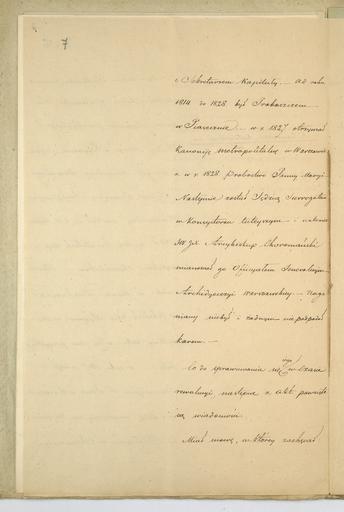 7
i Sekretarzem Kapituły. — Od roku
1814 do 1828 był Proboszczem
w Piasecznie. — w r. 1827 otrzymał
Kanonię metropolitalną w Warszawie
a w r. 1828 Probostwo Panny Maryi
Następnie został Sędzią Surrogatem
w Konsystorzu tutejszym — i nakoniec
JW JX Arcybiskup Choromański
mianował go Oficyałem Generalnym
Archidyecezyi warszawskiej. — Naga
niany niebył i żadnym nie podpadł
karom. —
Co do sprawowania się w czasie
rewolucyi następne z akt powzięte
są wiadomości.
Miał mowę, w której zachęcał